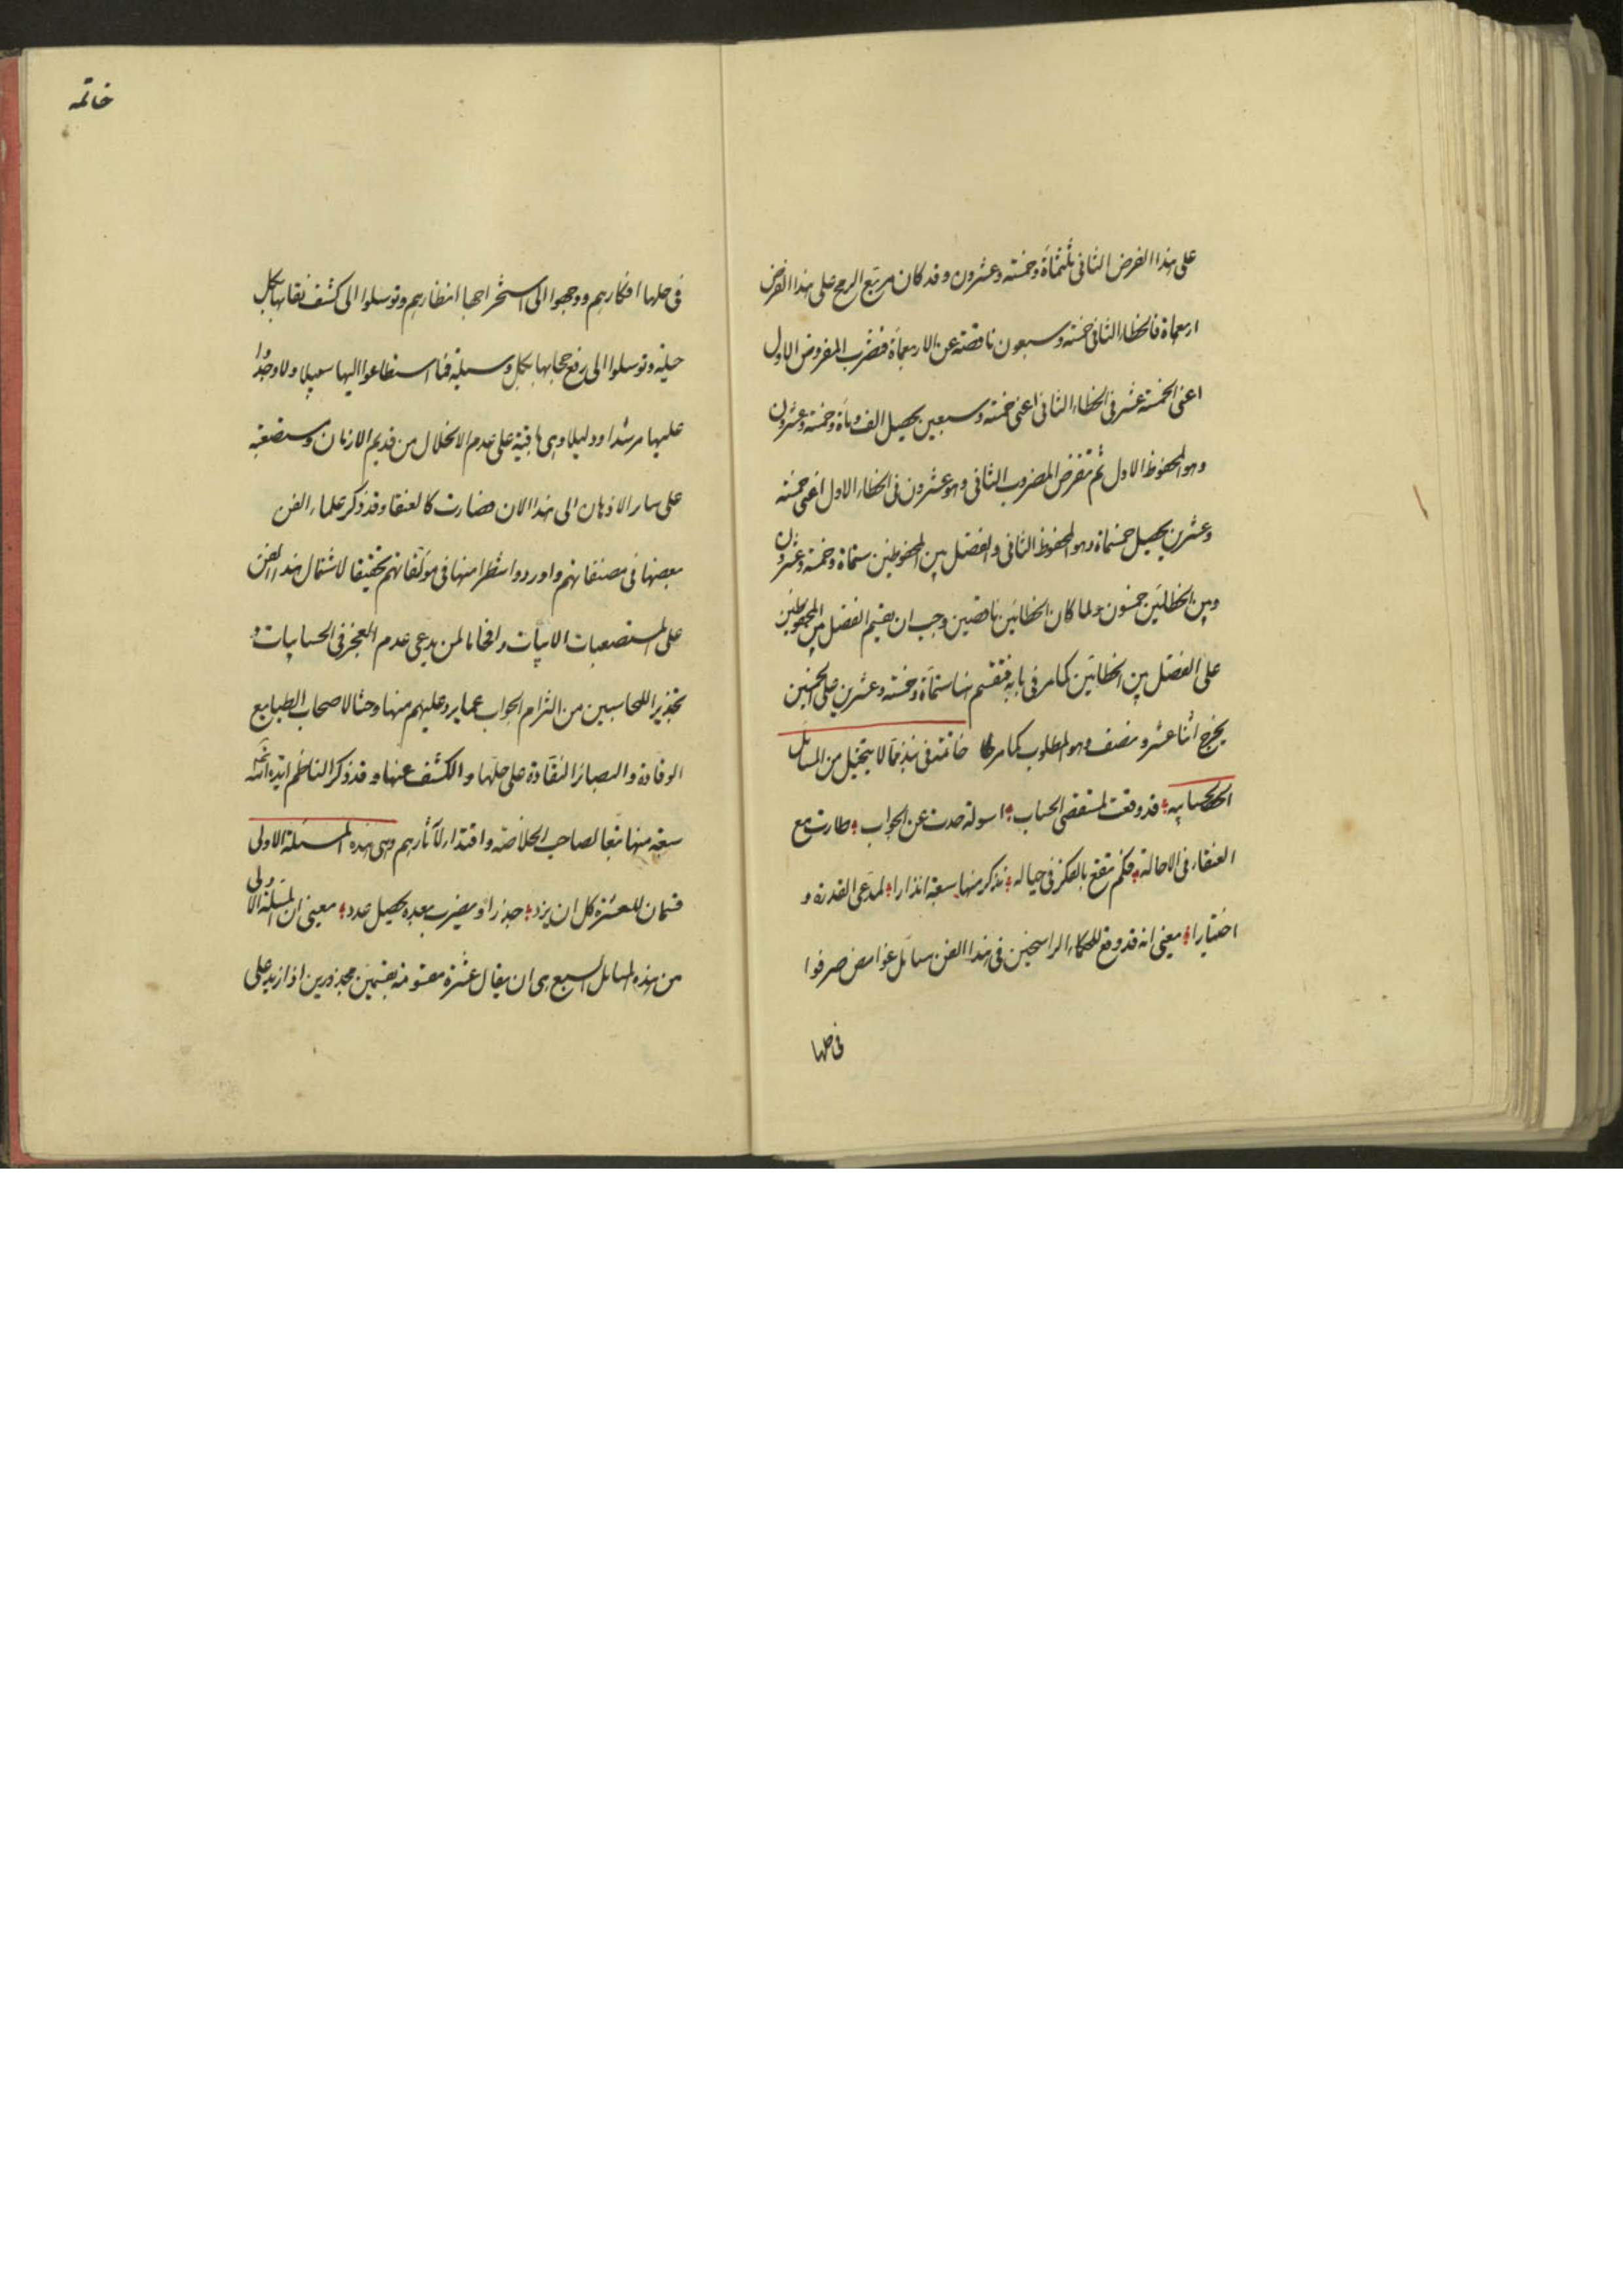 على هذا الفرض الثانى ثلثمأة وخمسة وعشرون وقد كان مربع الرمح على هذا الفرض
اربعمأة فالخطاء الثانى خمسة وسبعون ناقصة عن الاربعمأة فنضرب المفروض الاول
اعنى الخمسة عشر فى الخطاء الثانى اعنى خمسة وسبعين يحصيل الف ومأة وخمسة وعشرون
وهو المحفوظ الاول ثم نفرض المضروب الثانى وهو عشرون فى الخطاء الاول اعنى خمسة
وعشرين يحصيل خمسمأة وهو المحفوظ الثانى والفضل بين المحفوظين ستمأة وخمسة وعشرون
وبين الخطائين خمسون ولما كان الخطائين ناقصين وجب ان نقسم الفضل بين المحفوظين
على الفضل بين الخطائين كما مر فى بابه فنقسم هنا ستمأة وخمسة وعشرين على الخمسين
يخرج اثنا عشر ونصف وهو المطلوب كما مر خاتمة فى نبذ مما لا ينحل من المسائل
الحسابيه قد وقعت لمقتضى الحساب اسولة صدت عن الجواب طارت مع
العنقاء فى الاحالة فكم تقع بالفكر فى حباله نذكر منها سبعة انذارا لمدعى القدرة و
اختيارا معنى انه قد وقع للحكماء الراسخين فى هذا الفن مسائل غوامض صرفوا
فى حلها
خاتمه
فى حلها افكارهم ووجهوا الى استخراجها انظارهم وتوسلوا الى كشف نقابها بكل
حيلة وتوسلوا الى رفع حجابها بكل وسيلة فما استطاعوا اليها سبيلا ولا وجدوا
عليها مرشدا ودليلا وهى باقية على عدم الانحلال من قديم الازمان ومستصعبة
على سار الاذهان الى هذا الان فصارت كالعنقا وقد ذكر علماء الفن
بعضها فى مصنفاتهم واوردوا شطرا منها فى مؤلفاتهم تحقيقا لاشتمال هذا الفن
على المستصعبات الابيات وافحاما لمن يدعى عدم العجز فى الحسابيات و
تحذيرا للمحاسبين من التزام الجواب عما يرد عليهم منها وحثا لاصحاب الطبايع
الوقادة والبصائر النقادة على حلها والكشف عنها وقد ذكر الناظم ايده الله
سبعة منها تبعا لصاحب الخلاصة واقتداء لآثارهم وهى هذه المسئلة الاولى
قسمان للعشرة كل ان يزد جذرا ويضرب بعده يحصيل عدد معنى ان المسئلة الاولى
من هذه المسائل السبع هى ان يقال عشرة مقسومة بقسمين مجذورين اذا زيد على